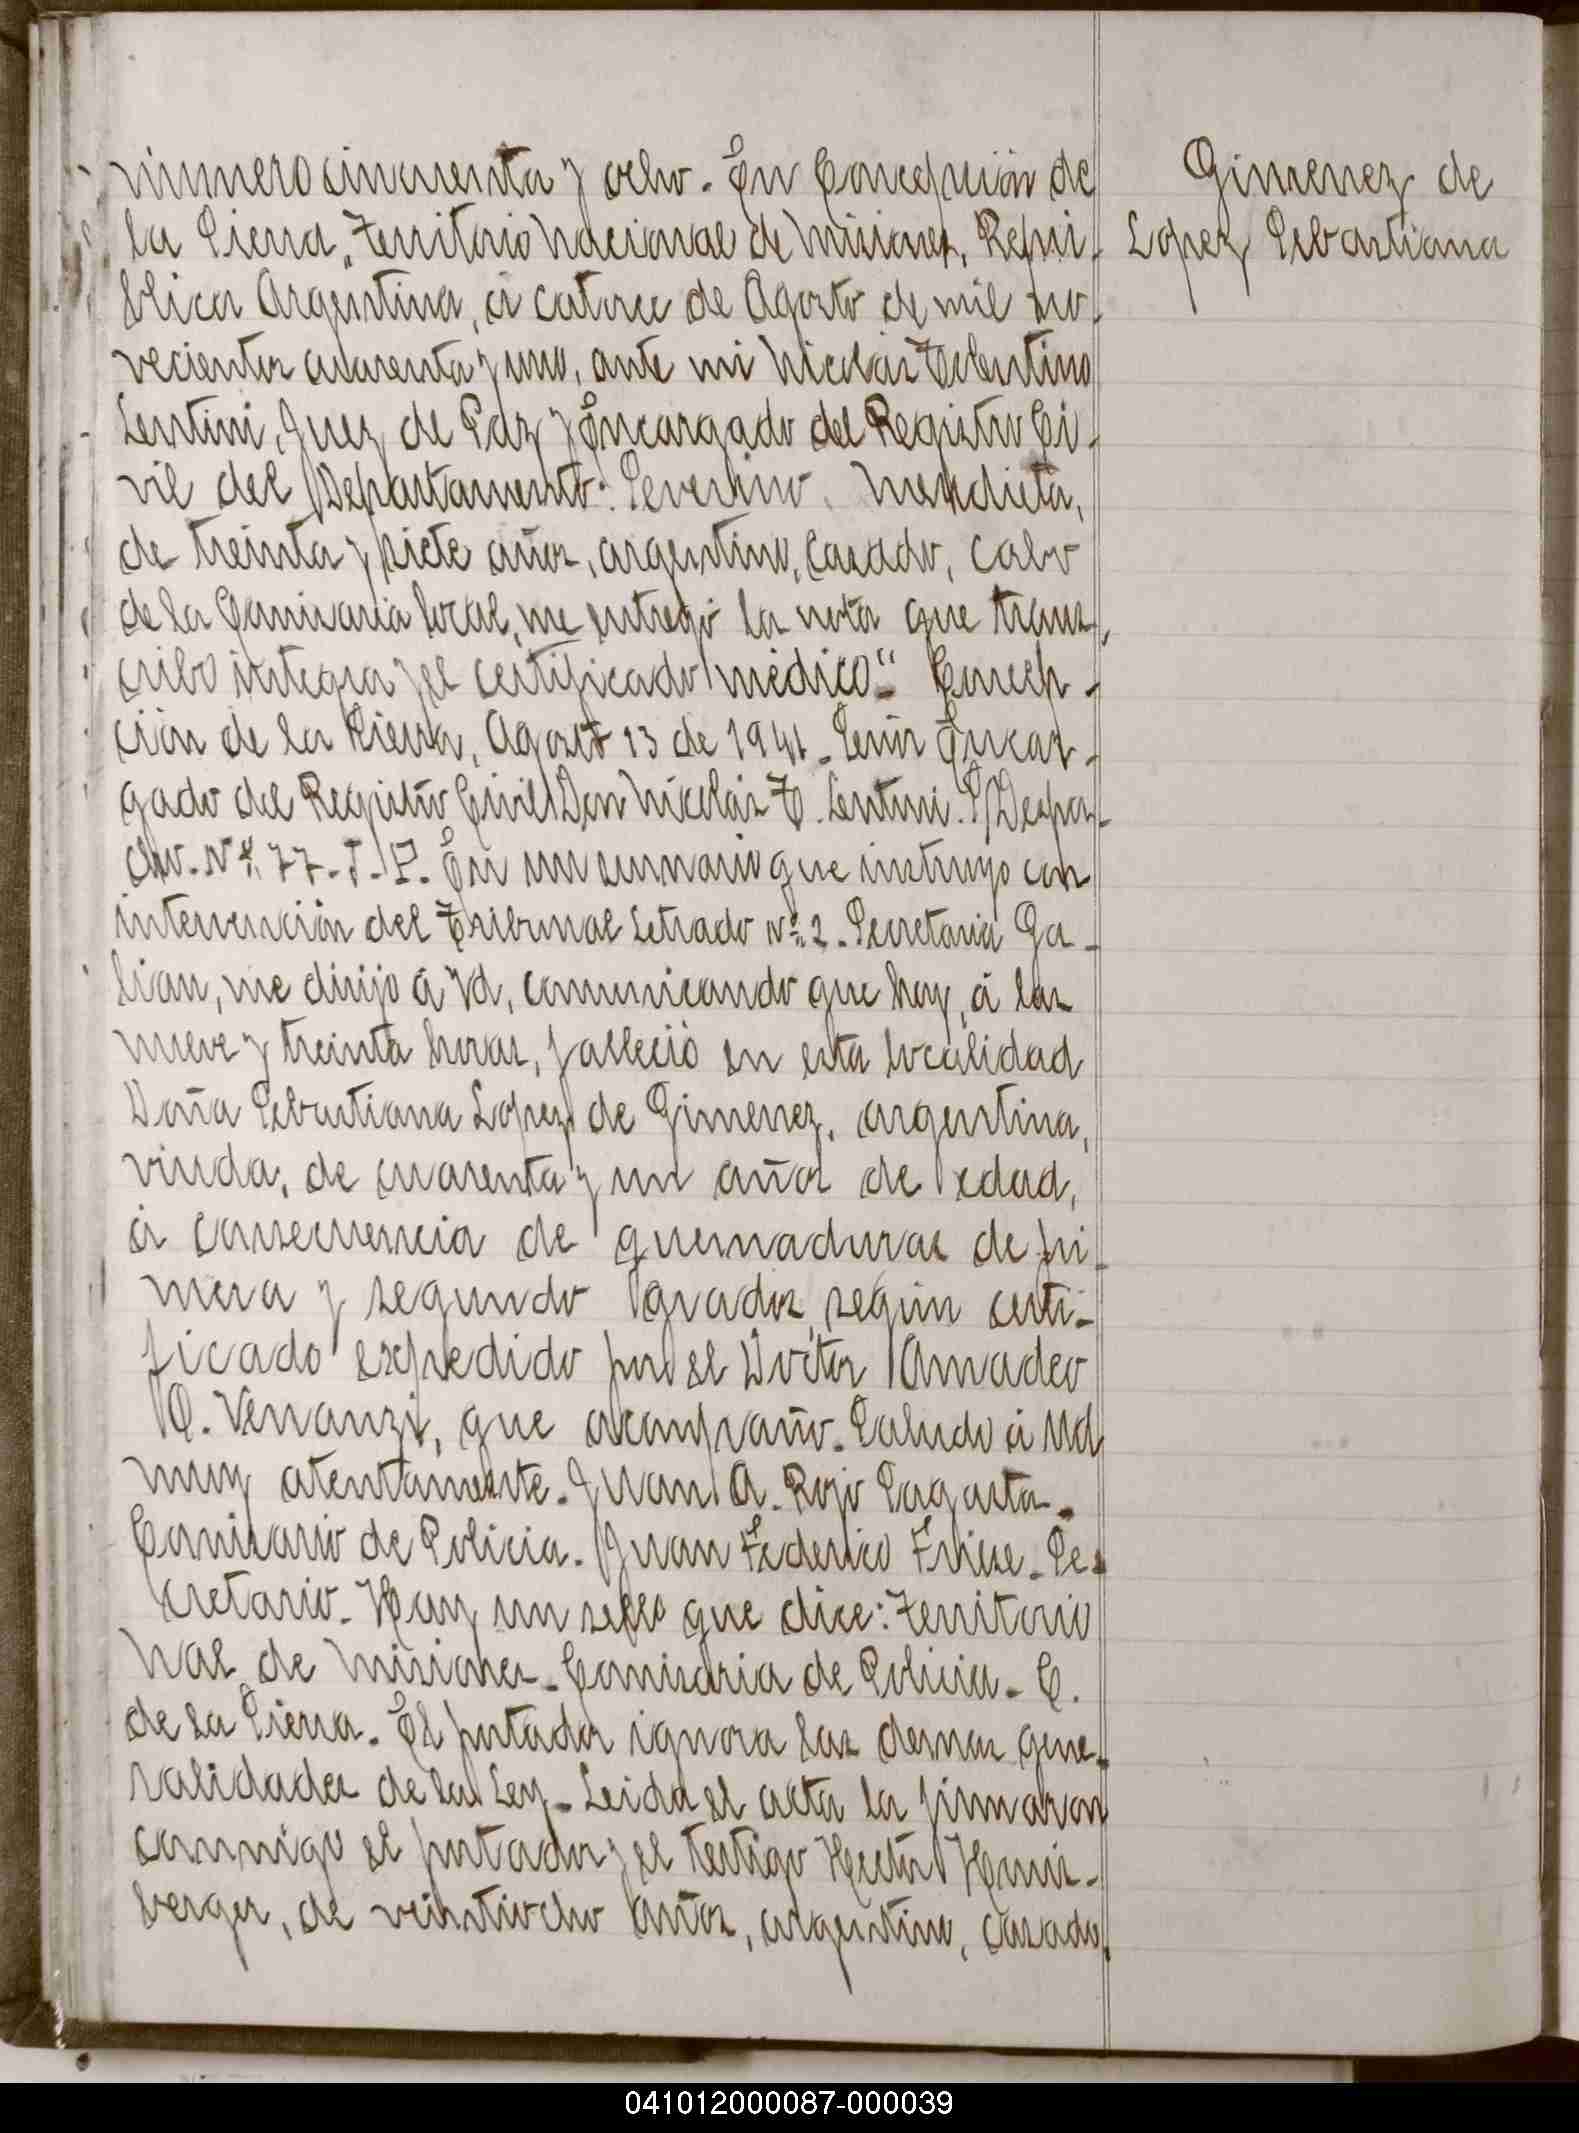 número cincuenta y ocho. En Concepción de
la Sierra, Territorio Nacional de Misiones, Repú-
blica Argentina, á catorce de Agosto de mil no-
vecientos cuarenta y uno, ante mi Nicolás Tolentino
Lentini, Juez de Paz y Encargado del Registro Ci-
vil del Departamento: Severino Mendieta,
de treinta y siete años, argentino, casado, cabo
de la Comisaria local, me entregó la nota que trans-
cribo integra y el certificado médico:" Concep-
ción de la Sierra, Agosto 13 de 1941. Señor Encar-
gado del Registro Civil Don Nicolás T. Lentini. S/Despa-
cho. Nº. 77-J-P. En un sumario que instruyo con
intervención del Tribunal Letrado Nº 2. Secretaria Ga-
lian, me dirijo a Vd, comunicando que hoy, á las
nueve y treinta horas, falleció en esta localidad
Doña Sebastiana Lopez de Gimenez, argentina,
viuda, de cuarenta y un años de edad,
á consecuencia de quemaduras de pri-
mera y segundo grados, según certi-
ficado expedido por el Doctor Amadeo
Q. Venanzi, que acompaño. Saludo á Ud
muy atentamente. Juan A. Rojo Sagasta.
Comisario de Policia. Juan Federico Friese. Se-
cretario. Hay un sello que dice: Territorio
Nal de Misiones. Comisaria de Policia. C.
de la Sierra. El portador ignora las demas gene-
ralidades de la Ley. Leida el acta la firmaron
conmigo el portador y el testigo Hector
berger, de veintiocho años, argentino, casado,
Gimenez de
Lopez Sebastiana
041012000087-000039